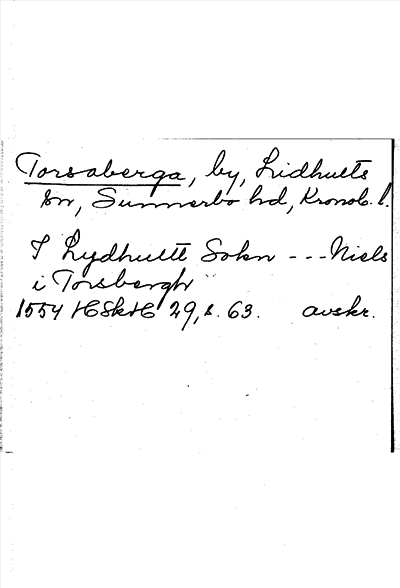 Torsaberga, by, Lidhults
sn, Sunnerbo hd, Kronob. l.
I Lydhultt Sokn --- Niels
i Torsbergh
1554 HSkH 29, s. 63. avskr.